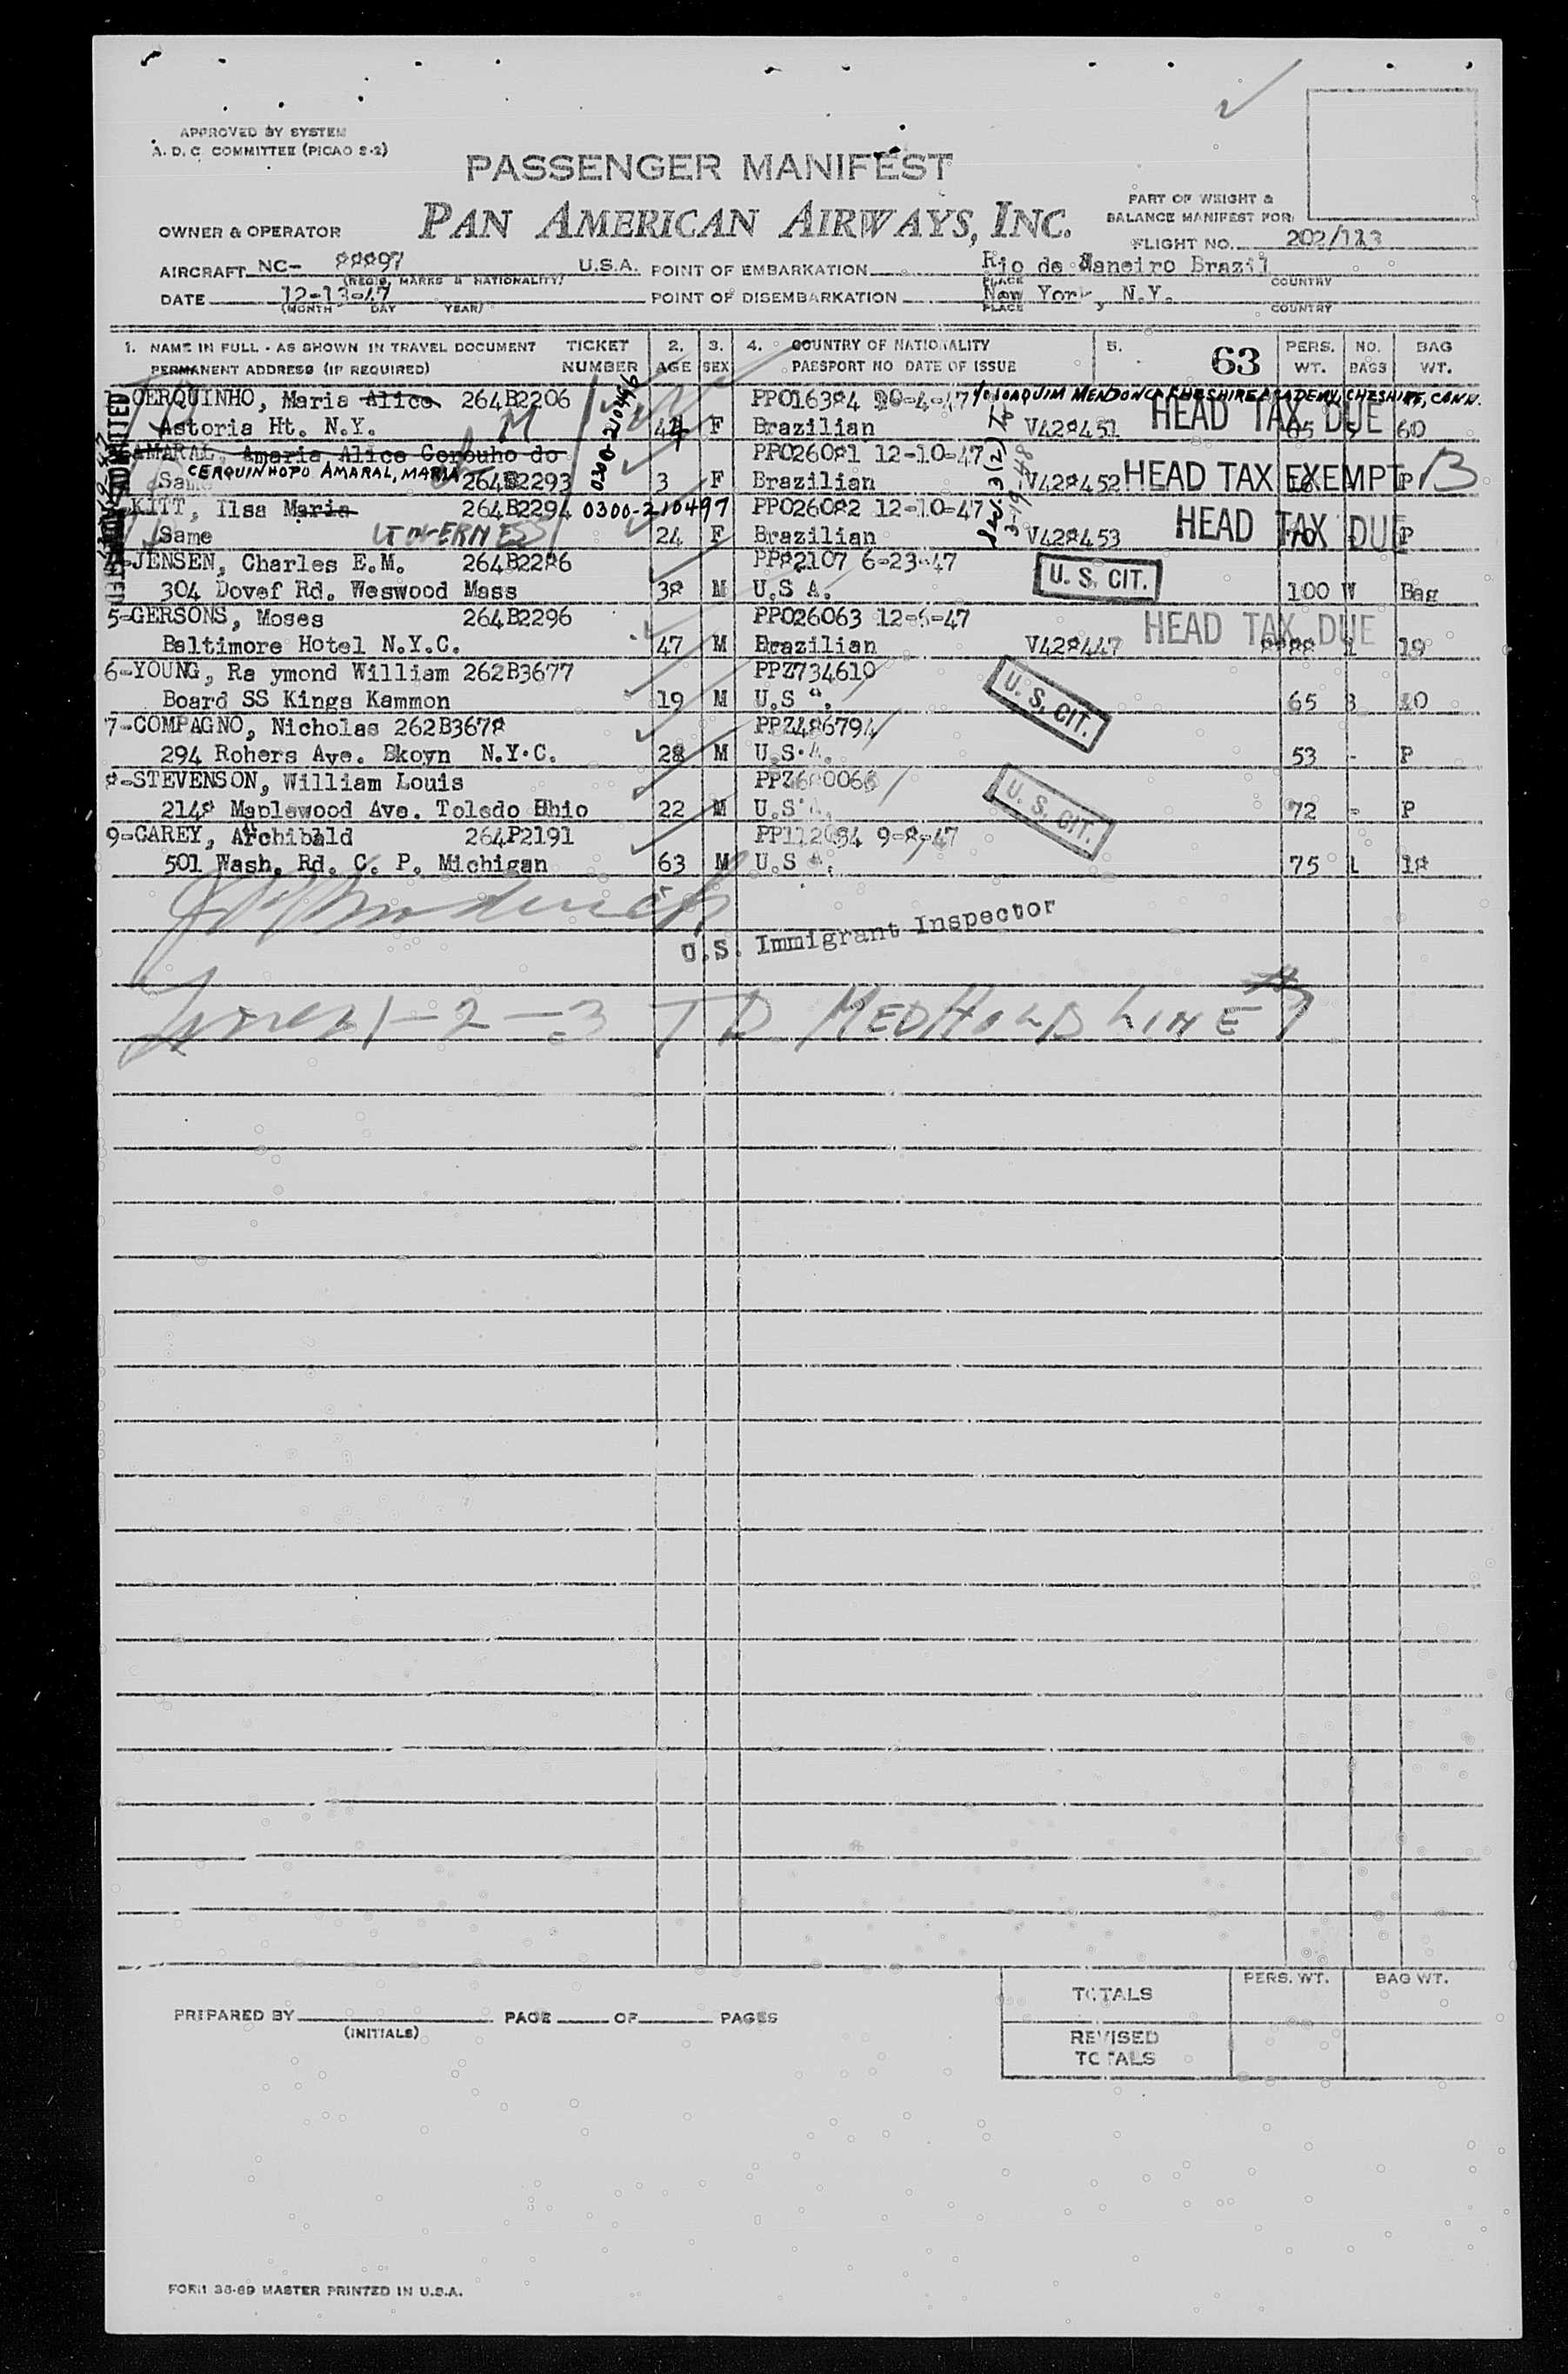 APPROVED BY SYSTEM
A. D. C. COMMITTEE (PICAO S-2)
PASSENGER MANIFEST
PAN AMERICAN AIRWAYS, INC.
PART OF WEIGHT &
BALANCE MANIFEST FOR
OWNER & OPERATOR
FLIGHT NO. 202/113
AIRCRAFT NC- 88897 U.S.A. POINT OF EMBARKATION Rio de Janeiro Brazil
(REGIS. MARKS & NATIONALITY) PLACE COUNTRY
DATE 12-13-47 POINT OF DISEMBARKATION New York, N.Y.
(MONTH DAY YEAR) PLACE COUNTRY
1. NAME IN FULL - AS SHOWN IN TRAVEL DOCUMENT TICKET 2. 3. 4. COUNTRY OF NATIONALITY 5. 63 PERS. NO. BAG
PERMANENT ADDRESS (IF REQUIRED) NUMBER AGE SEX PASSPORT NO DATE OF ISSUE WT. BAGS WT.
CERQUINHO, Maria Alice 264B2206 PP016384 -4-47 % JOAQUIM MENDONCA CHESHIRE ACADEMY, CHESHIRE, CONN.
Astoria Ht. N.Y. 44 F Brazilian V428451 HEAD TAX DUE 60
AMARAL, Amaria Alice Cerouho do PP026081 12-10-47
CERQUINHO DO AMARAL, MARIA
Same 264B2293 3 F Brazilian V428452 HEAD TAX EXEMPT P B
KITT, Ilsa Maria 264B2294 0300-210497 PP026082 12-10-47
Same 24 F Brazilian V428453 HEAD TAX DUE 70 P
0300-210496
3-19-48
ADMITTED
JENSEN, Charles E.M. 264B2286 PP82107 6-23-47
304 Dovef Rd. Weswood Mass 38 M U.S A. U. S. CIT. 100 W Bag
5-GERSONS, Moses 264B2296 PP026063 12-6-47
Baltimore Hotel N.Y.C. 47 M Brazilian V428447 HEAD TAX DUE 88 1 19
6-YOUNG, Ra ymond William 262B3677 PPZ734610
Board SS Kings Kammon 19 M U.S U. S. CIT. 65 3 10
7-COMPAGNO, Nicholas 262B3678 PPZ486794
294 Rohers Ave. Bkoyn N.Y.C. 28 M U.S.A. 53 - P
8-STEVENSON, William Louis
2148 Maplewood Ave. Toledo Ohio 22 M U.S A. U. S. CIT. 72 - P
9-CAREY, Archibald 264P2191 9-8-47
501 Wash. Rd. C. P. Michigan 63 M U.S A. 75 1 18
U.S. Immigrant Inspector
Lines 1-2-3 T D MED HOLD LINE 7
TOTALS PERS. WT. BAG WT.
PREPARED BY PAGE OF PAGES
(INITIALS)
REVISED
TOTALS
FORM 38-69 MASTER PRINTED IN U.S.A.